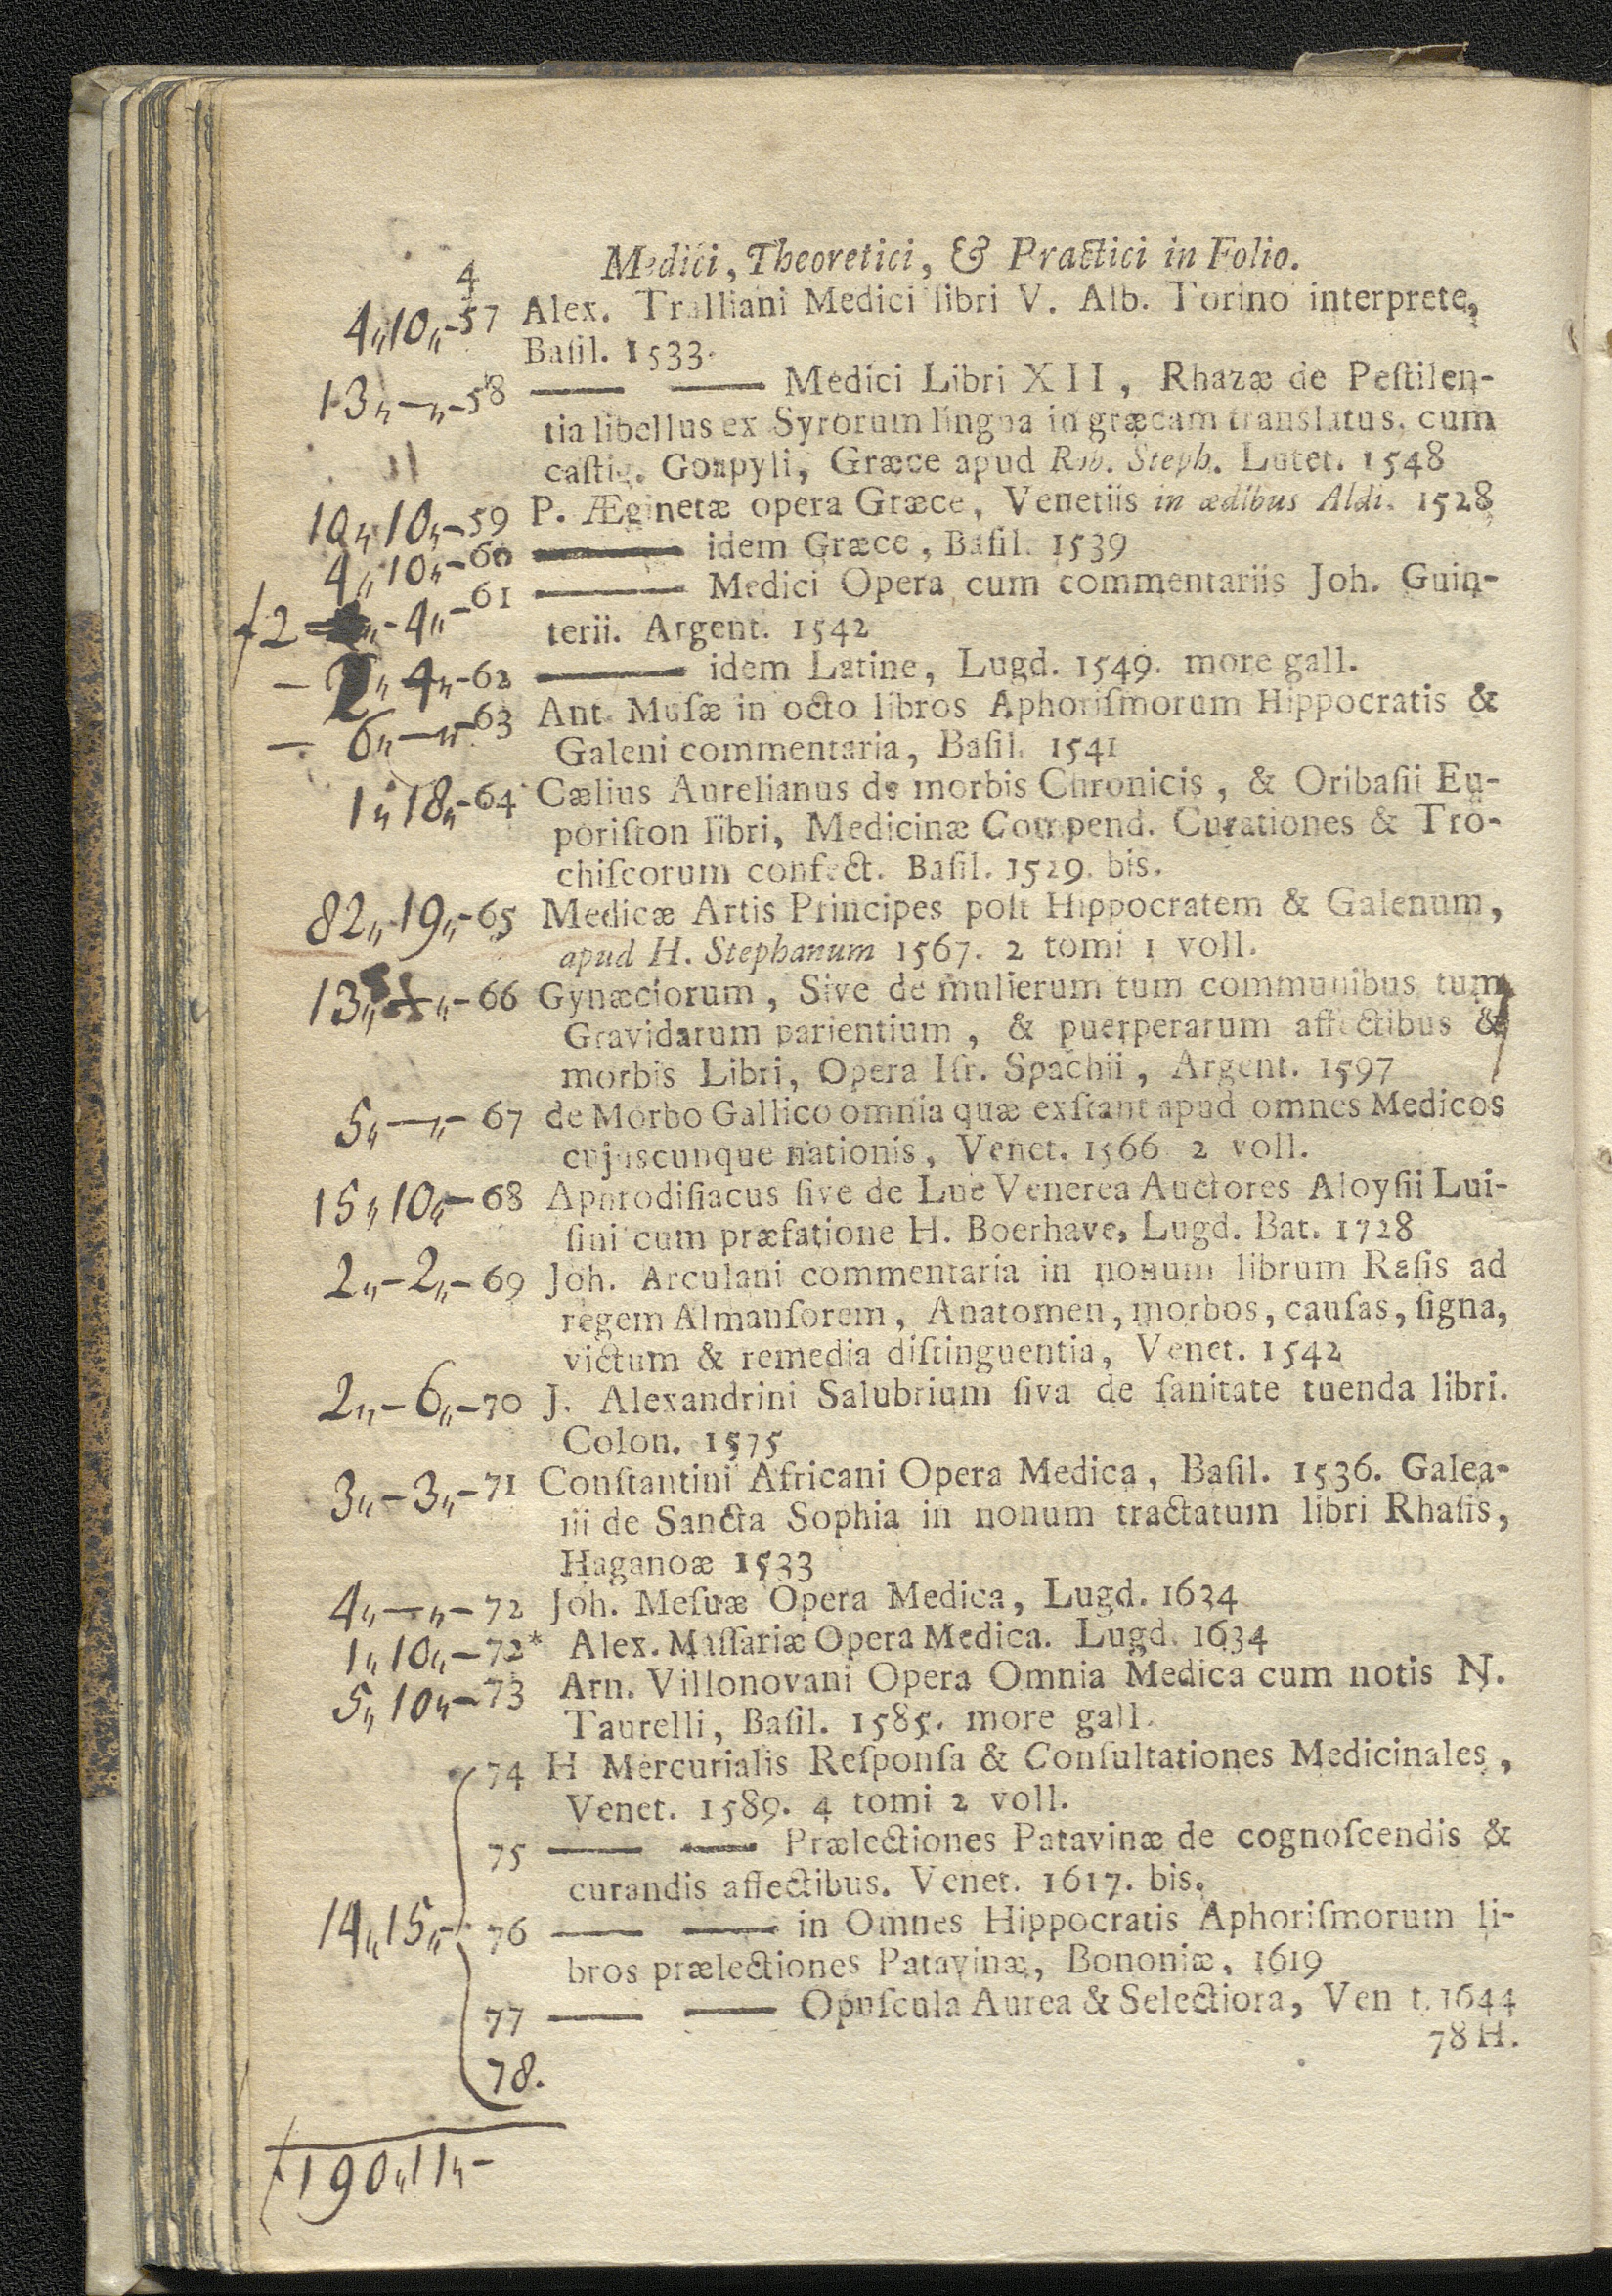 4 Medici, Theoretici, & Practici in Folio.
4,,10,,-57 Alex. Tralliani Medici libri V. Alb. Torino interprete,
Baſil. 1533.
13,,-,,-58 —— —— Medici Libri XII, Rhazæ de Peſtilen-
tia libellus ex Syrorum lingua in græcam translatus, cum
caſtig. Goupyli, Græce apud Rob. Steph. Lutet. 1548
10,,10,,-59 P. Æginetæ opera Græce, Venetiis in ædibus Aldi. 1528
4,,10,,-60 ——— idem Græce, Baſil. 1539
f2 ,,-4,,-61 ——— Medici Opera cum commentariis Joh. Guin-
terii. Argent. 1542
- 2,,4,,-62 ——— idem Latine, Lugd. 1549. more gall.
- 6,,-,,-63 Ant. Muſæ in octo libros Aphoriſmorum Hippocratis &
Galeni commentaria, Baſil. 1541
1,,18,,-64 Cælius Aurelianus de morbis Chronicis, & Oribaſii Eu-
poriſton libri, Medicinæ Compend. Curationes & Tro-
chiſcorum confect. Baſil. 1529. bis.
82,,19,,-65 Medicæ Artis Principes poſt Hippocratem & Galenum,
apud H. Stephanum 1567. 2 tomi 1 voll.
13,, ,,-66 Gynæciorum, Sive de mulierum tum communibus tum
Gravidarum parientium, & puerperarum affectibus &
morbis Libri, Opera Iſr. Spachii, Argent. 1597
5,,-,,-67 de Morbo Gallico omnia quæ exſtant apud omnes Medicos
cujuscunque nationis, Venet. 1566 2 voll.
15,,10,,-68 Aphrodiſiacus ſive de Lue Venerea Auctores Aloyſii Lui-
ſini cum præfatione H. Boerhave, Lugd. Bat. 1728
2,,-2,,-69 Joh. Arculani commentaria in nonum librum Raſis ad
regem Almanſorem, Anatomen, morbos, cauſas, ſigna,
victum & remedia diſtinguentia, Venet. 1542
2,,-6,,-70 J. Alexandrini Salubrium ſiva de ſanitate tuenda libri.
Colon. 1575
3,,-3,,-71 Conſtantini Africani Opera Medica, Baſil. 1536. Galea-
iii de Sancta Sophia in nonum tractatum libri Rhaſis,
Haganoæ 1533
4,,-,,-72 Joh. Meſuæ Opera Medica, Lugd. 1634
1,,10,,-72* Alex. Maſſariæ Opera Medica. Lugd. 1634
5,,10,,-73 Arn. Villonovani Opera Omnia Medica cum notis N.
Taurelli, Baſil. 1585. more gall.
74 H Mercurialis Reſponſa & Conſultationes Medicinales,
Venet. 1589. 4 tomi 2 voll.
75 —— —— Prælectiones Patavinæ de cognoſcendis &
curandis affectibus. Venet. 1617. bis.
14,,15,,- 76 —— —— in Omnes Hippocratis Aphoriſmorum li-
bros prælectiones Patavinæ, Bononiæ, 1619
77 —— —— Opuſcula Aurea & Selectiora, Ven t. 1644
78 H.
78.
f190,,11,,-